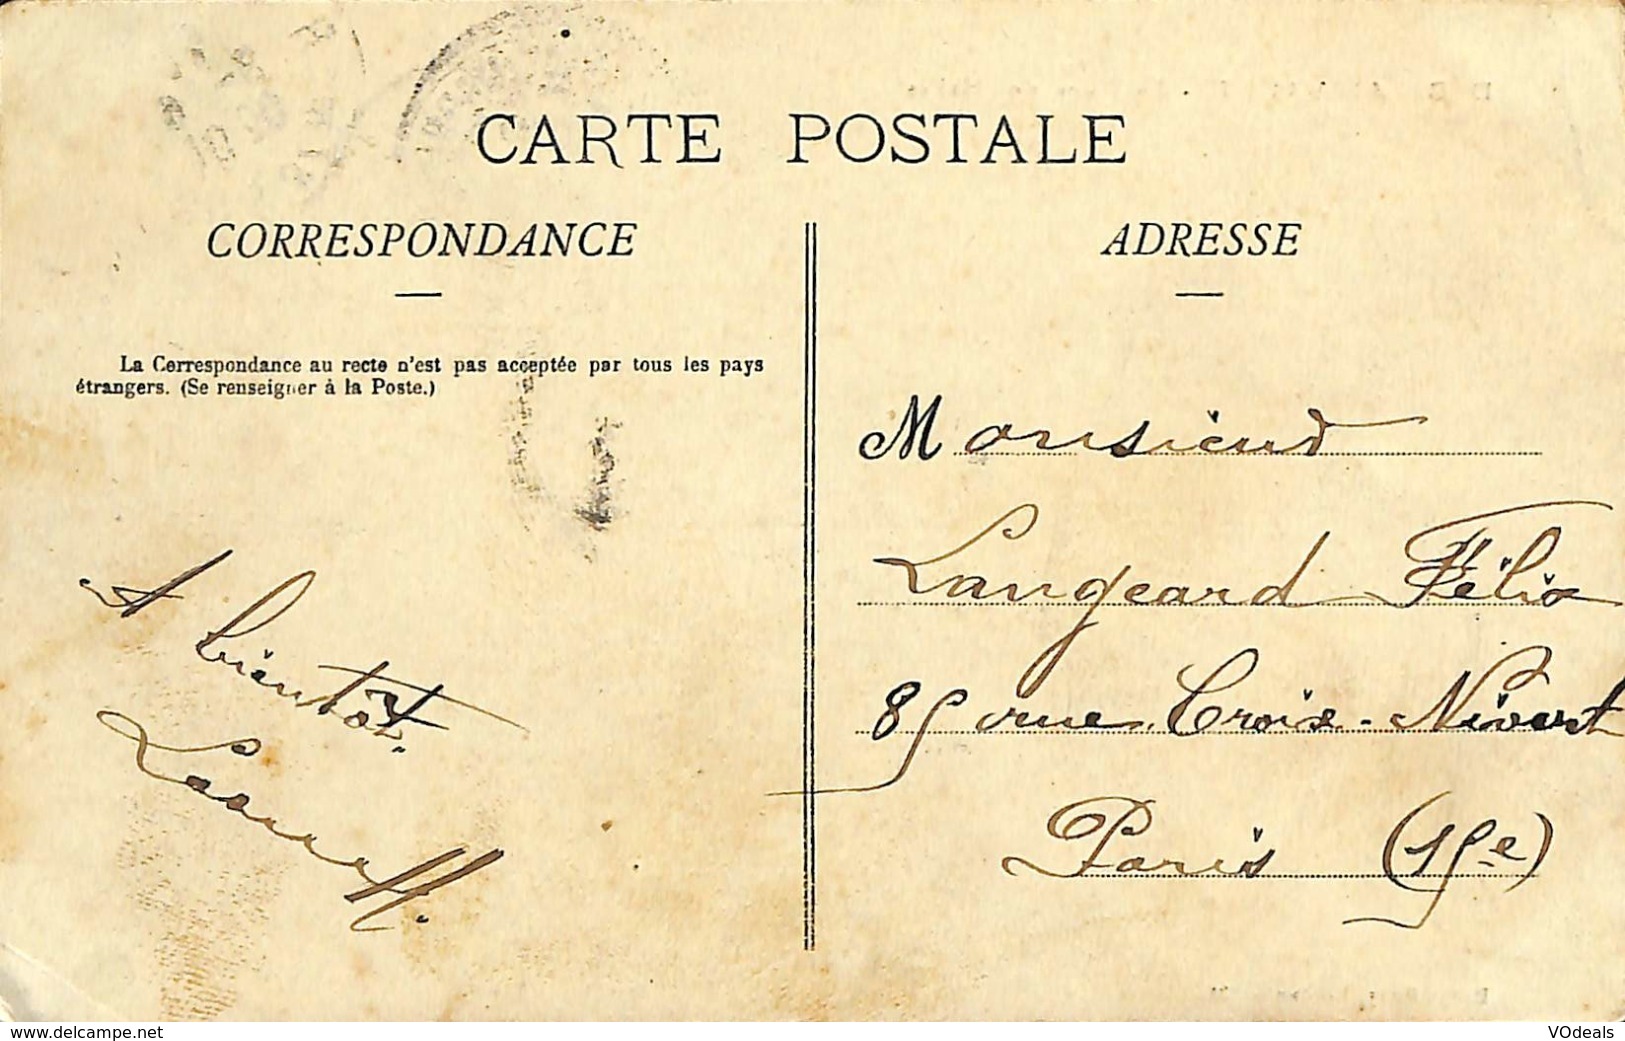 CARTE POSTALE
CORRESPONDANCE
La Correspondance au recto n'est pas acceptée par tous les pays
étrangers. (Se renseigner à la Poste.)
A
bientôt.
ADRESSE
Monsieur
Langeard Félix
85 rue Croix-Nivert
Paris (15e)
www.delcampe.net
VOdeals